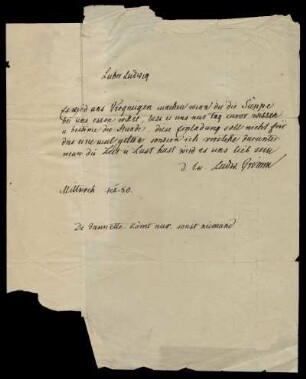 Lieber Ludwig
es wird uns Vergnügen machen wenn du die Suppe
bei uns essen willst, lass es uns nur tag zuvor wissen
u bestimme die Stunde. diese Einladung soll nicht für
das eine mal gelten sondern ich verstehe darunter
wenn du Zeit u Lust hast wird es uns lieb sein
D Ludw Grimm
Mittwoch
kömt nur sonst niemand